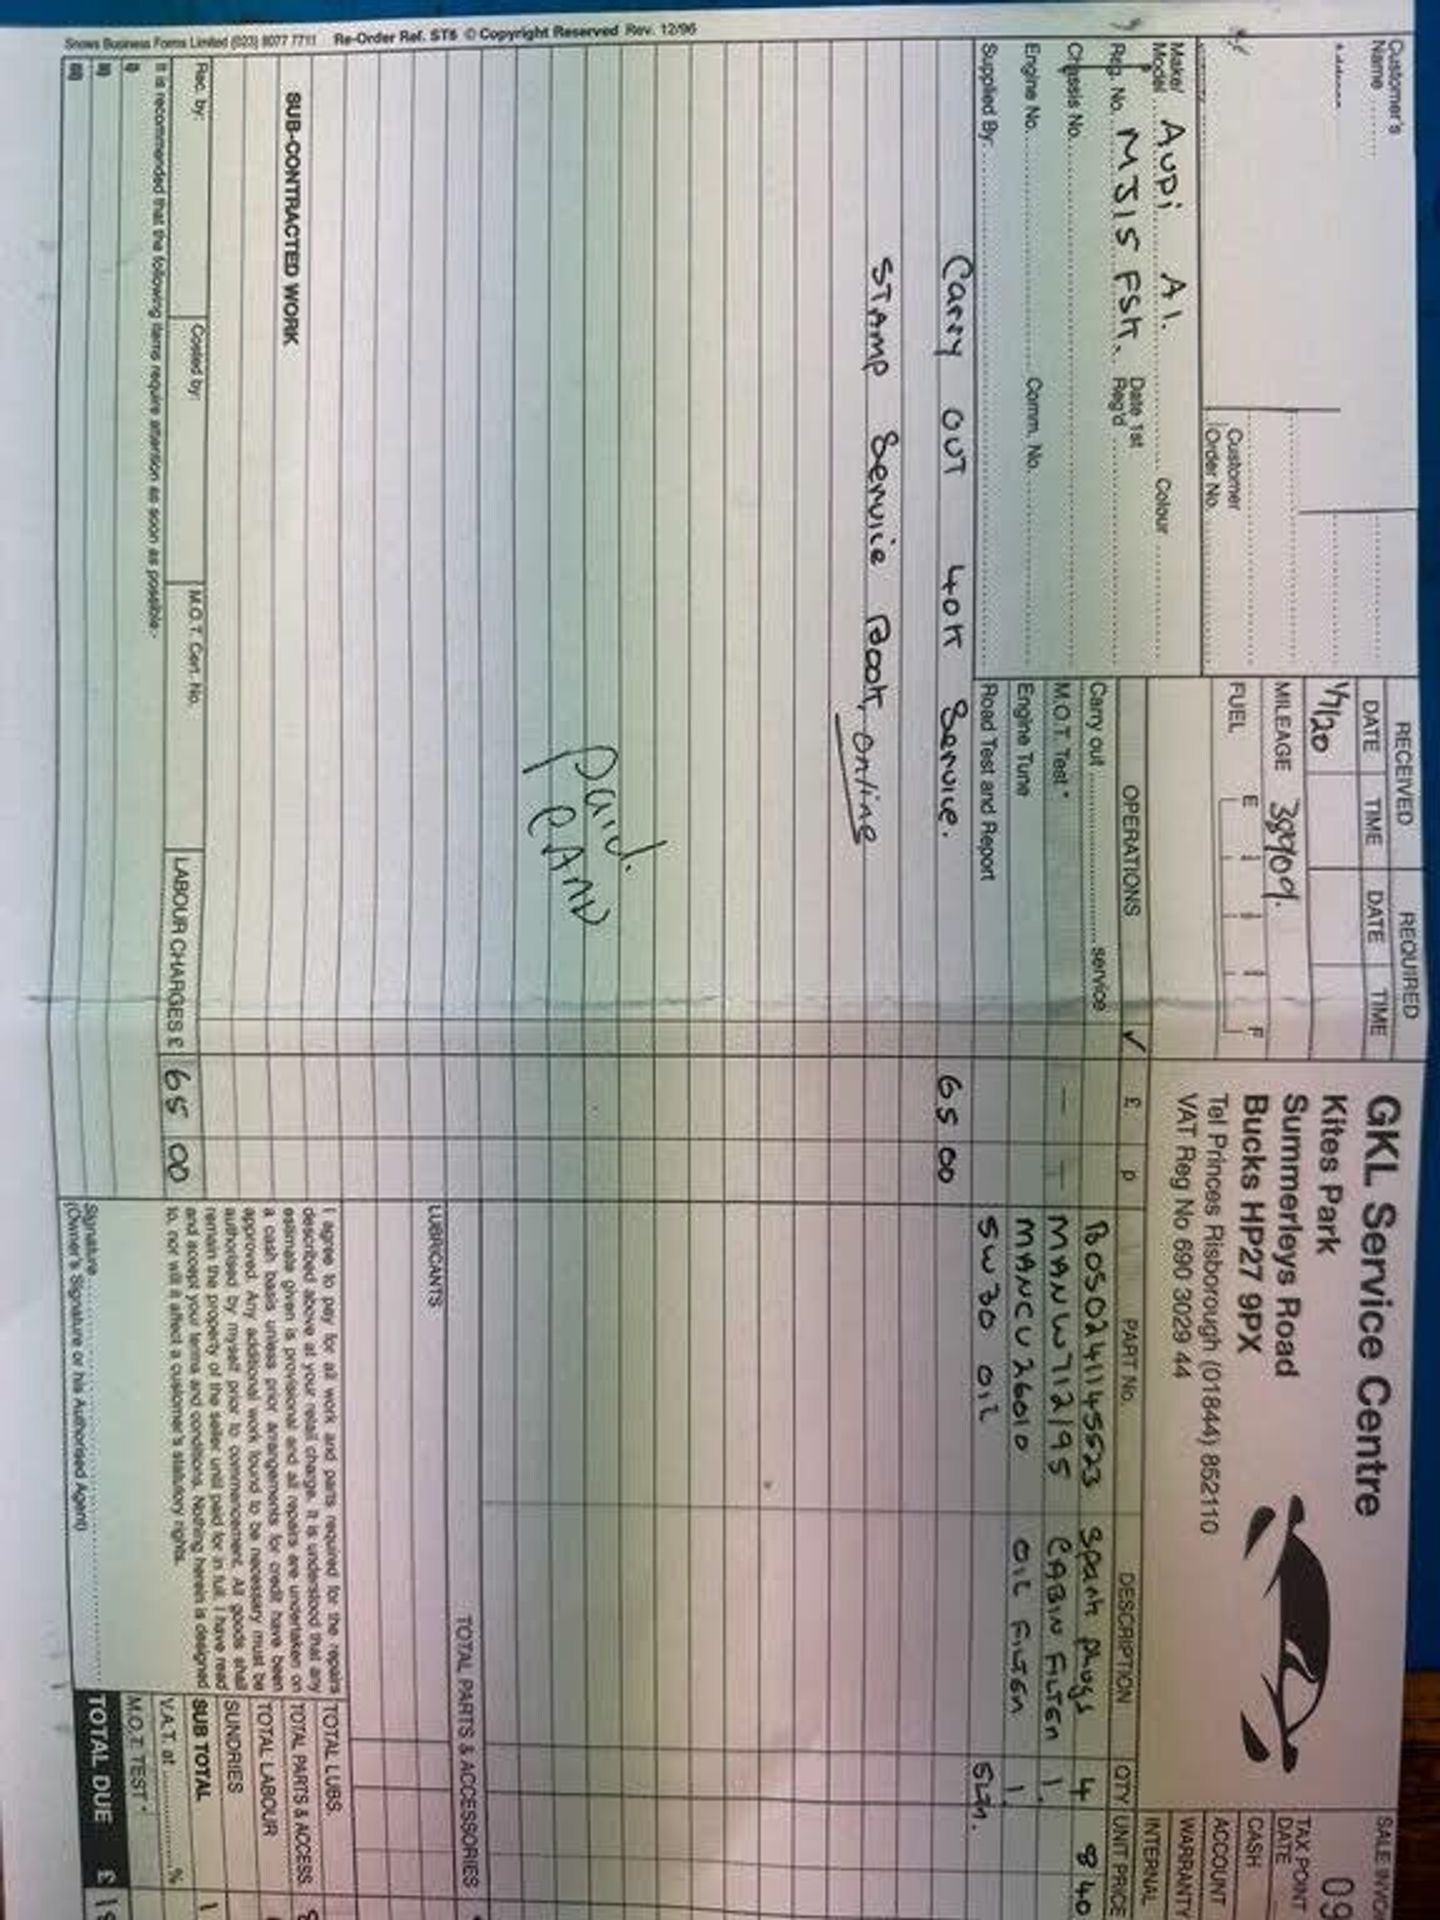 Customer's
Name
Customer
Order No.
Make/
Model AUDI A1. Colour
Reg. No. MJ15 FSK. Date 1st
Reg'd
Chassis No.
Engine No. Comm. No.
Supplied By:
RECEIVED REQUIRED
DATE TIME DATE TIME
1/7/20
MILEAGE 38909.
FUEL E F
GKL Service Centre
Kites Park
Summerleys Road
Bucks HP27 9PX
Tel Princes Risborough (01844) 852110
VAT Reg No 690 3029 44
SALE INVO
09
TAX POINT
DATE
CASH
ACCOUNT
WARRANTY
INTERNAL
OPERATIONS ✓ £ p
Carry out service
M.O.T. Test * — —
Engine Tune
Road Test and Report
Carry OUT 40K Service. 65 00
STAMP Service Book, online
Paid.
SUB-CONTRACTED WORK
Rec. by: Costed by: M.O.T. Cert. No. LABOUR CHARGES £ 65 00
It is recommended that the following items require attention as soon as possible:-
i)
ii)
iii)
PART No. DESCRIPTION QTY UNIT PRICE
BOS0241145523 Spark plugs 4 8 40
MANW712/95 CABIN FILTER 1.
MANCU26010 OIL FILTER 1.
5W30 OIL 5Ltr.
TOTAL PARTS & ACCESSORIES
LUBRICANTS
I agree to pay for all work and parts required for the repairs
described above at your retail charge. It is understood that any
estimate given is provisional and all repairs are undertaken on
a cash basis unless prior arrangements for credit have been
approved. Any additional work found to be necessary must be
authorised by myself prior to commencement. All goods shall
remain the property of the seller until paid for in full. I have read
and accept your terms and conditions. Nothing herein is designed
to, nor will it affect a customer's statutory rights.
Signature
(Owner's Signature or his Authorised Agent)
TOTAL LUBS.
TOTAL PARTS & ACCESS. 8
TOTAL LABOUR
SUNDRIES
SUB TOTAL 1
V.A.T. at %
M.O.T. TEST *
TOTAL DUE £ 1
Snows Business Forms Limited (023) 8077 7711 Re-Order Ref. ST6 © Copyright Reserved Rev. 12/96